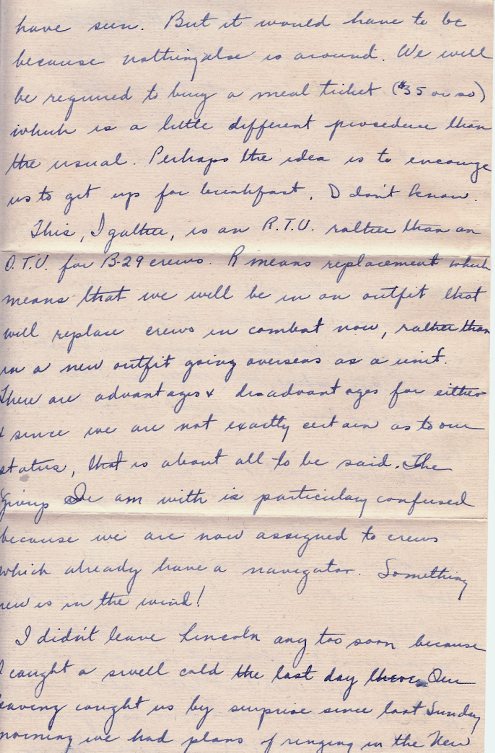 have seen. But it would have to be
because nothing else is around. We will
be required to buy a meal ticket ($35 or so)
which is a little different procedure than
the usual. Perhaps the idea is to encourage
us to get up for breakfast, I don't know.
This, I gather, is an R.T.U. rather than an
O.T.U. for B-29 crews. R means replacement which
means that we will be in an outfit that
will replace crews in combat now, rather than
in a new outfit going overseas as a unit.
There are advantages & disadvantages for either
& since we are not exactly certain as to our
status, that is about all to be said. The
group I am with is particulary confused
because we are now assigned to crews
which already have a navigator. Something
new is in the wind!
I didn't leave Lincoln any too soon because
I caught a swell cold the last day there. Our
leaving caught us by surprise since last Sunday
morning we had plans of ringing in the New